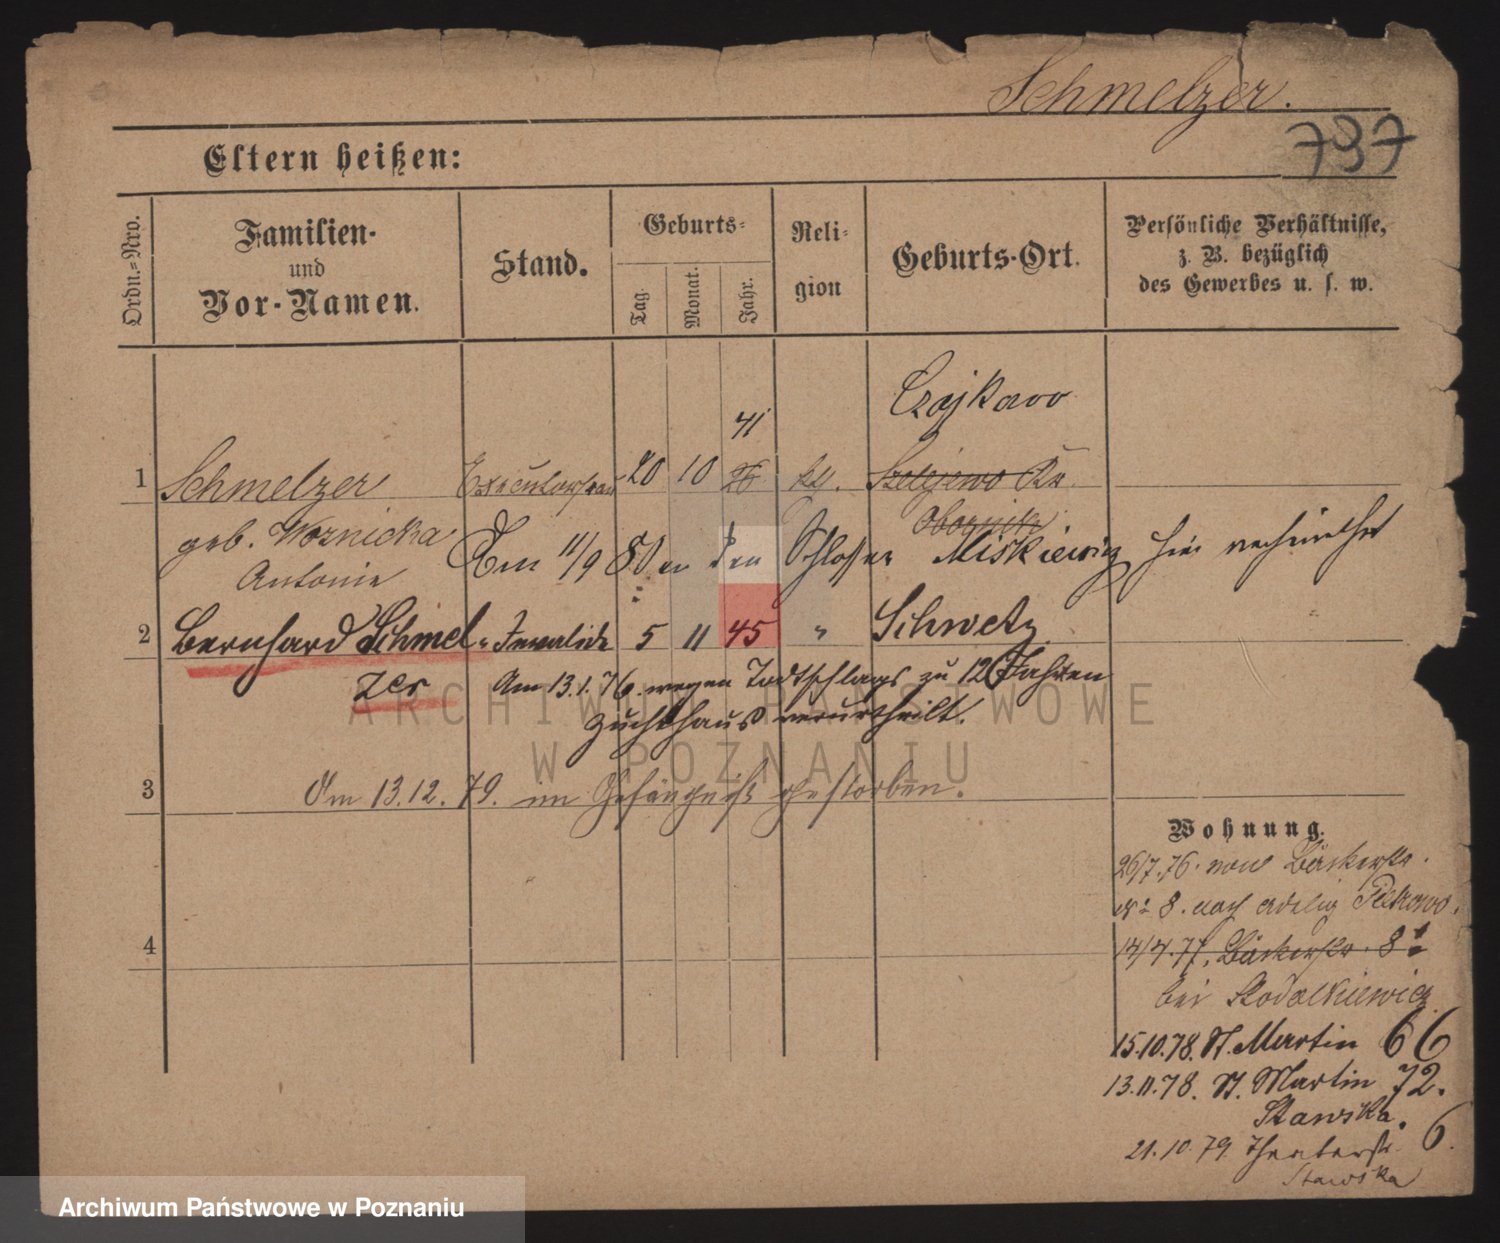 Schmelzer.
737
Eltern heißen:
Ordn.-Nro.
Familien-
und
Vor-Namen.
Stand.
Geburts-
Tag.
Monat.
Jahr.
Reli-
gion
Geburts-Ort.
Persönliche Verhältnisse,
z. B. bezüglich
des Gewerbes u. s. w.
Czajkowo
41
1 Schmelzer Executorfrau 20 10 26 kth. Szelejewo Kr.
Obornik
geb. Woznicka
Am 11/9 80 den Schlosser Miskiewicz hier
Antonie
2 Bernhard Schmel- Invalide 5 11 45 " Schwetz
zer Am 13.1.76. wegen Todtschlags zu 12 Jahren
Zuchthaus verurtheilt.
ARCHIWUM PAŃSTWOWE
W POZNANIU
3 Am 13.12.79. im Gefängniß gestorben.
Wohnung.
26/7.76. von Bäckerstr.
No 8. nach adelig Petrowo.
4
Bäckerstr. 8
bei
15.10.78. St. Martin 66
13.11.78. St. Martin 72.
Stawska.
21.10.79. Theaterstr. 6.
Stawska
Archiwum Państwowe w Poznaniu